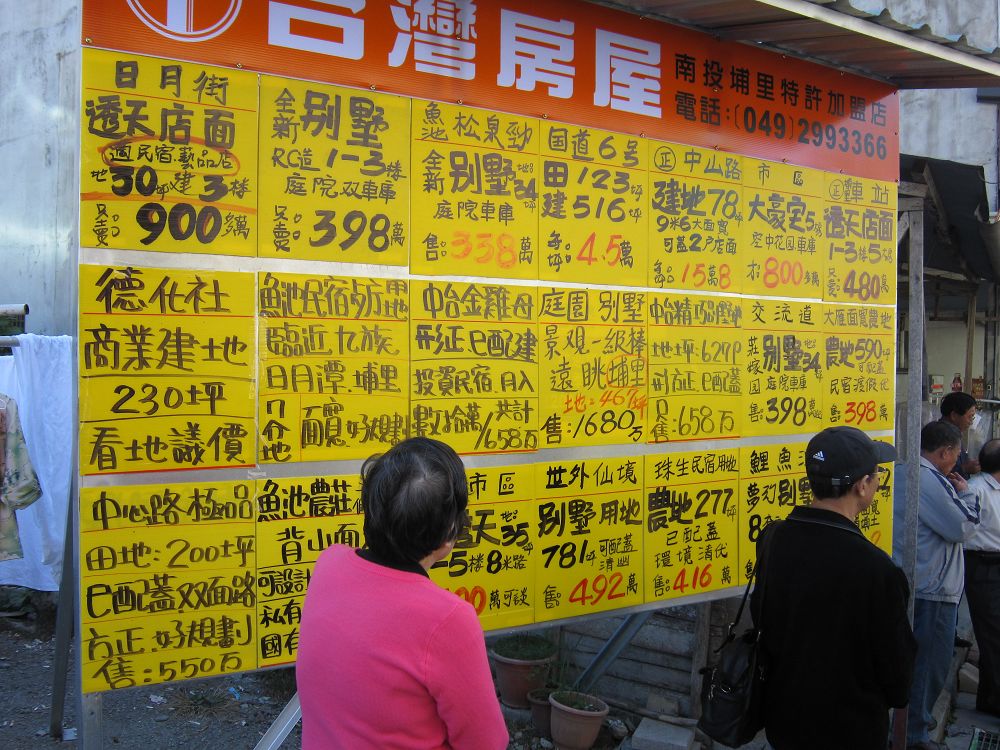 台灣房屋
南投埔里特許加盟店
電話:(049)2993366
日月街
透天店面
適民宿藝品店
地50坪建3樓
只賣:900多萬
全新別墅
RC造1-3樓
庭院.双車庫
只賣:398萬
魚池松泉勁
全新別墅地坪34
庭院車庫
售:338萬
国道6号
田123坪
建516坪
每坪:4.5萬
正中山路
建地78坪
9米6大面寬
可蓋2戶店面
每坪:15萬8
市區
大豪宅5房
空中花園車庫
800多萬
正車站
透天店面
1-3樓5
只賣:480萬
德化社
商業建地
230坪
看地議價
魚池民宿用地
臨近九族
日月潭.埔里
面寬好規劃
中台金雞母
形正.已配建
投資民宿.月入
數拾萬/共計
1658万
庭園別墅
景观一級棒
遠眺埔里
土地:467坪
售:1680万
中台精巧別墅地
地坪:627坪
方正.已配蓋
售:658万
交流道
莊稼園
別墅地坪34
庭院車庫
售:398萬
大雁面寬農地
農地590坪
民宿渡假優
售:398萬
中心路極品
田地:200坪
已配蓋双面路
方正.好規劃
售:550万
魚池農莊
背山面
可設計
私有
國有
市區
天地坪35
-5樓8米路
萬可談
世外仙境
別墅用地
781坪可配蓋清幽
售:492萬
珠生民宿用地
農地277坪
已配蓋
環境清优
售:416萬
鯉魚
夢幻別